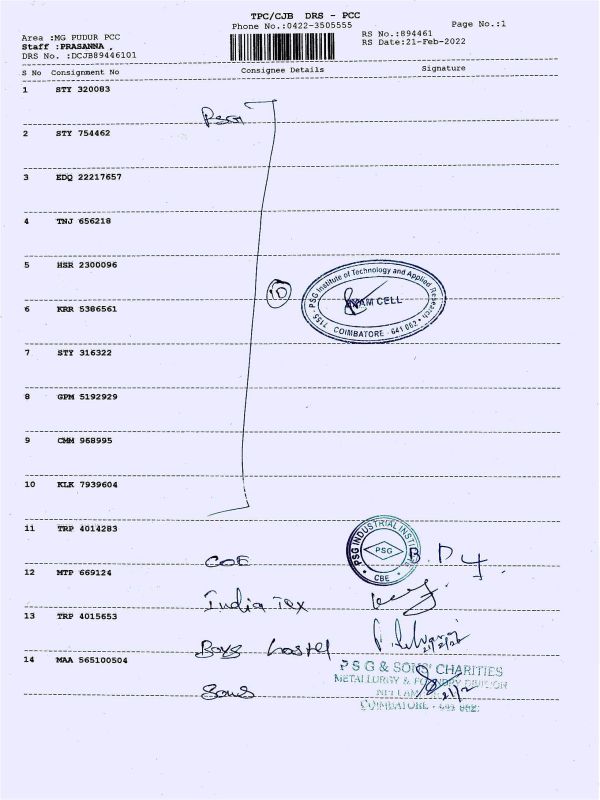 TPC/CJB DRS - PCC
Phone No.:0422-3505555
Page No.:1
Area :MG PUDUR PCC
Staff :PRASANNA ,
DRS No. :DCJB89446101
RS No.:894461
RS Date:21-Feb-2022
S No Consignment No Consignee Details Signature
1 STY 320083
2 STY 754462
3 EDQ 22217657
4 TNJ 656218
5 HSR 2300096
PSG Institute of Technology and Applied Research
10
EXAM CELL
7155
COIMBATORE - 641 062
6 KRR 5386561
7 STY 316322
8 GPM 5192929
9 CMM 968995
10 KLK 7939604
11 TRP 4014283
PSG INDUSTRIAL INSTITUTE
PSG
CBE
COE
12 MTP 669124
India Tex
13 TRP 4015653
Boys hostel
14 MAA 565100504
P S G & SONS' CHARITIES
METALLURGY & FOUNDRY DIVISION
Sons
21/2
COIMBATORE - 641 062